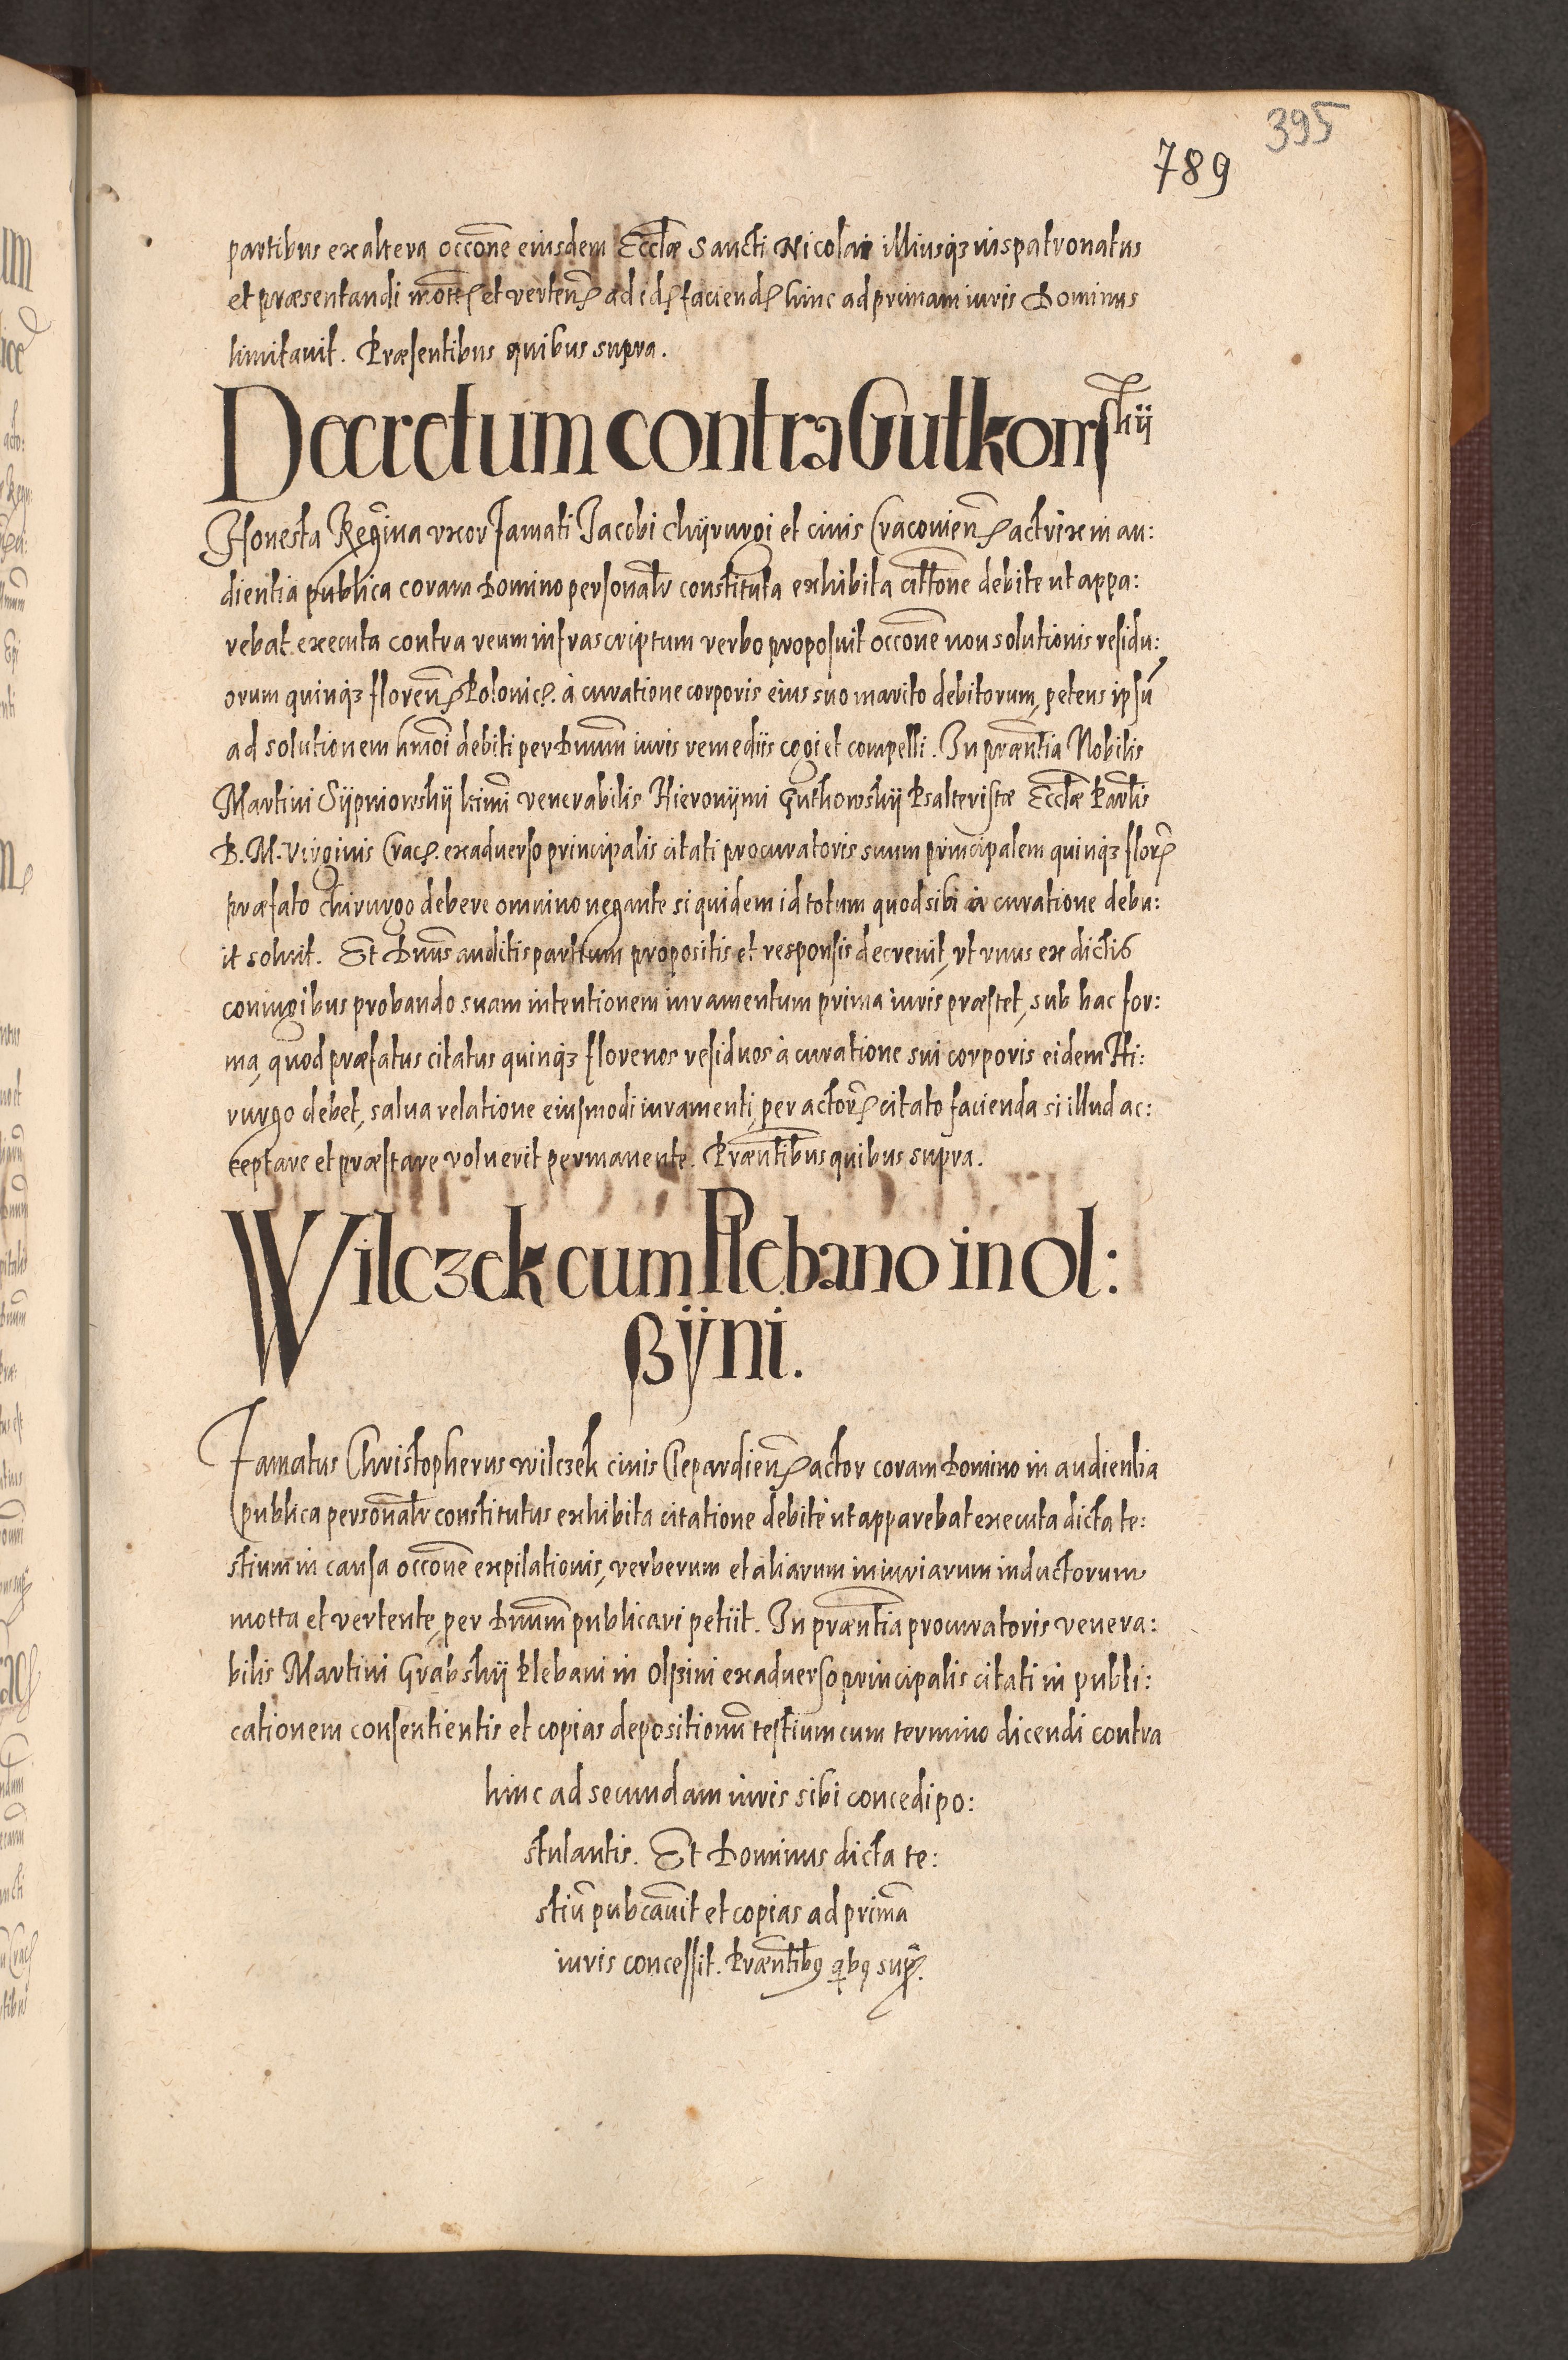 395
789
partibus ex altera occõne eiusdem Ecclæ Sancti Nicolai illiusq3 iuspatronatus
et præsentandi motę et vertenꝭ ad idꝭ faciendꝭ hinc ad primam iuris Dominus
limitauit. Præsentibus quibus supra.
Decretum contra Gutkowskij
Honesta Regina vxor Famati Jacobi chÿrurgi et ciuis Cracouienꝭ actrix in au:
dientia publica coram Domino personalr constituta exhibita cittõne debite ut appa:
rebat executa contra reum infrascriptum verbo proposuit occõne non solutionis residu:
orum quinq3 florenꝭ Polonicꝭ. à curatione corporis eius suo marito debitorum, petens ipsũ
ad solutionem hmõi debiti per Dnum iuris remediis cogi et compelli. In præntia Nobilis
Martini Sÿpniowskÿ ltimi venerabilis Hieronÿmi Gutkowskÿ Psalteristæ Ecclæ Parlis
B. M. Virginis Cracꝭ. ex aduerso principalis citati procuratoris suum principalem quinq3 florꝭ
præfato chirurgo debere omnino negante si quidem id totum quod sibi à curatione debu:
it soluit. Et Dnus auditis partium propositis et responsis decreuit, vt vnus ex dictis
coniugibus probando suam intentionem iuramentum prima iuris præstet, sub hac for:
ma, quod præfatus citatus quinq3 florenos residuos à curatione sui corporis eidem Hi:
rurgo debet, salua relatione eiusmodi iuramenti, per actorꝭ citato facienda si illud ac:
ceptare et præstare voluerit permanente. Præntibus quibus supra.
Wilczek cum Plebano in Ol:
ßÿni.
Famatus Christopherus Wilczek ciuis Clepardienꝭ actor coram Domino in audientia
publica personalr constitutus exhibita citatione debite ut apparebat executa dicta te:
stium in causa occõne expilationis, verberum et aliarum iniuriarum inductorum
motta et vertente, per Dnum publicari petiit. In præntia procuratoris venera:
bilis Martini Grabskÿ Plebani in Olßini ex aduerso principalis citati in publi:
cationem consentientis et copias depositionũ testium cum termino dicendi contra
hinc ad secundam iuris sibi concedi po:
stulantis. Et Dominus dicta te:
stiũ pubcauit et copias ad primã
iuris concessit. Præntibꝯ qbꝯ supꝭ.